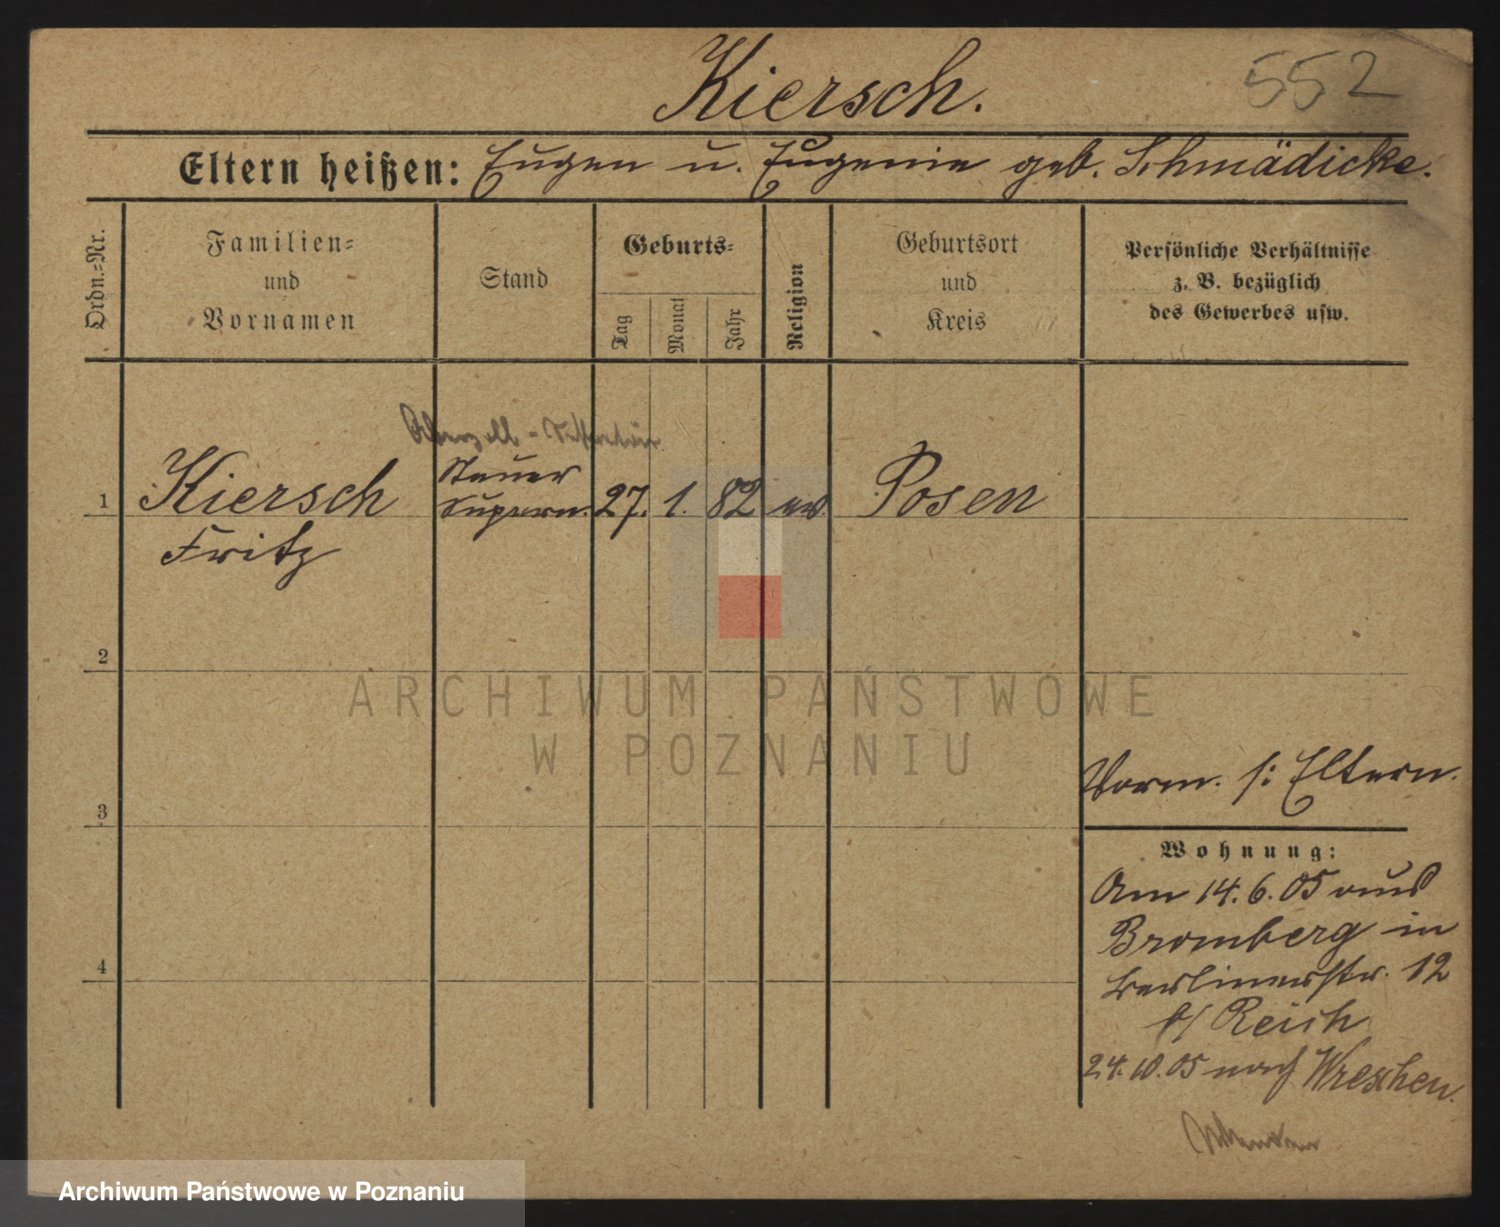 Kiersch.
552
Eltern heißen: Eugen u. Eugenie geb. Schmädicke.
Ordn.=Nr.
Familien=
und
Vornamen
Stand
Geburts=
Tag
Monat
Jahr
Religion
Geburtsort
und
Kreis
Persönliche Verhältnisse
z. B. bezüglich
des Gewerbes usw.
1
Kiersch
Fritz
Steuer
Supern.
27.
1.
82
ev.
Posen
2
3
4
ARCHIWUM PAŃSTWOWE
W POZNANIU
Vorm. s: Eltern.
Wohnung:
Am 14.6.05 aus
Bromberg in
Berlinerstr. 12
b/ Reich
24.10.05 nach Wreschen.
Archiwum Państwowe w Poznaniu